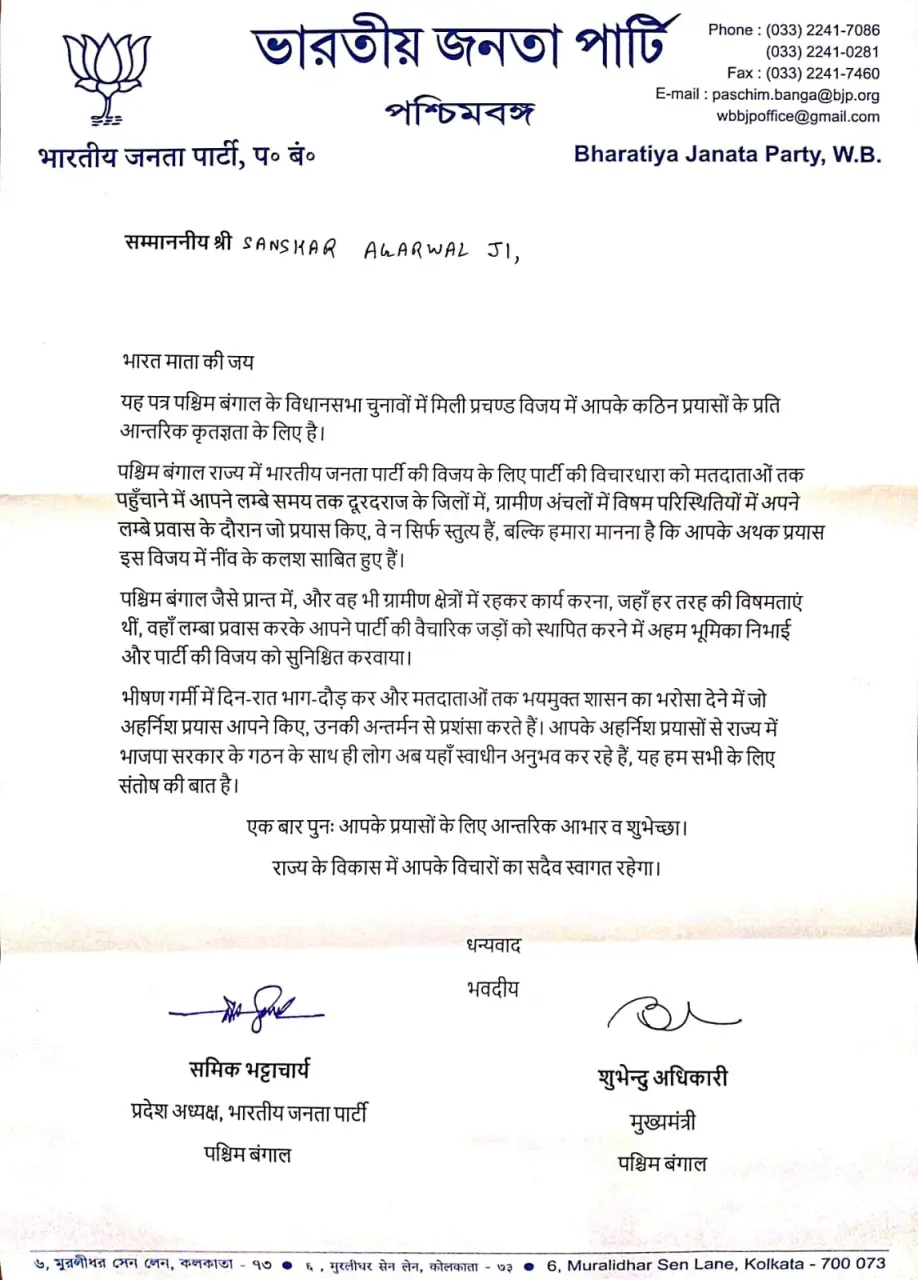 ভারতীয় জনতা পার্টি
পশ্চিমবঙ্গ
Phone : (033) 2241-7086
(033) 2241-0281
Fax : (033) 2241-7460
E-mail : paschim.banga@bjp.org
wbbjpoffice@gmail.com
भारतीय जनता पार्टी, प० बं०
Bharatiya Janata Party, W.B.
सम्माननीय श्री SANSKAR AGARWAL JI,
भारत माता की जय
यह पत्र पश्चिम बंगाल के विधानसभा चुनावों में मिली प्रचण्ड विजय में आपके कठिन प्रयासों के प्रति
आन्तरिक कृतज्ञता के लिए है।
पश्चिम बंगाल राज्य में भारतीय जनता पार्टी की विजय के लिए पार्टी की विचारधारा को मतदाताओं तक
पहुँचाने में आपने लम्बे समय तक दूरदराज के जिलों में, ग्रामीण अंचलों में विषम परिस्थितियों में अपने
लम्बे प्रवास के दौरान जो प्रयास किए, वे न सिर्फ स्तुत्य हैं, बल्कि हमारा मानना है कि आपके अथक प्रयास
इस विजय में नींव के कलश साबित हुए हैं।
पश्चिम बंगाल जैसे प्रान्त में, और वह भी ग्रामीण क्षेत्रों में रहकर कार्य करना, जहाँ हर तरह की विषमताएं
थीं, वहाँ लम्बा प्रवास करके आपने पार्टी की वैचारिक जड़ों को स्थापित करने में अहम भूमिका निभाई
और पार्टी की विजय को सुनिश्चित करवाया।
भीषण गर्मी में दिन-रात भाग-दौड़ कर और मतदाताओं तक भयमुक्त शासन का भरोसा देने में जो
अहर्निश प्रयास आपने किए, उनकी अन्तर्मन से प्रशंसा करते हैं। आपके अहर्निश प्रयासों से राज्य में
भाजपा सरकार के गठन के साथ ही लोग अब यहाँ स्वाधीन अनुभव कर रहे हैं, यह हम सभी के लिए
संतोष की बात है।
एक बार पुनः आपके प्रयासों के लिए आन्तरिक आभार व शुभेच्छा।
राज्य के विकास में आपके विचारों का सदैव स्वागत रहेगा।
धन्यवाद
भवदीय
समिक भट्टाचार्य
प्रदेश अध्यक्ष, भारतीय जनता पार्टी
पश्चिम बंगाल
शुभेन्दु अधिकारी
मुख्यमंत्री
पश्चिम बंगाल
৬, মুরলীধর সেন লেন, কলকাতা - ৭৩ ● ६, मुरलीधर सेन लेन, कोलकाता - ७३ ● 6, Muralidhar Sen Lane, Kolkata - 700 073